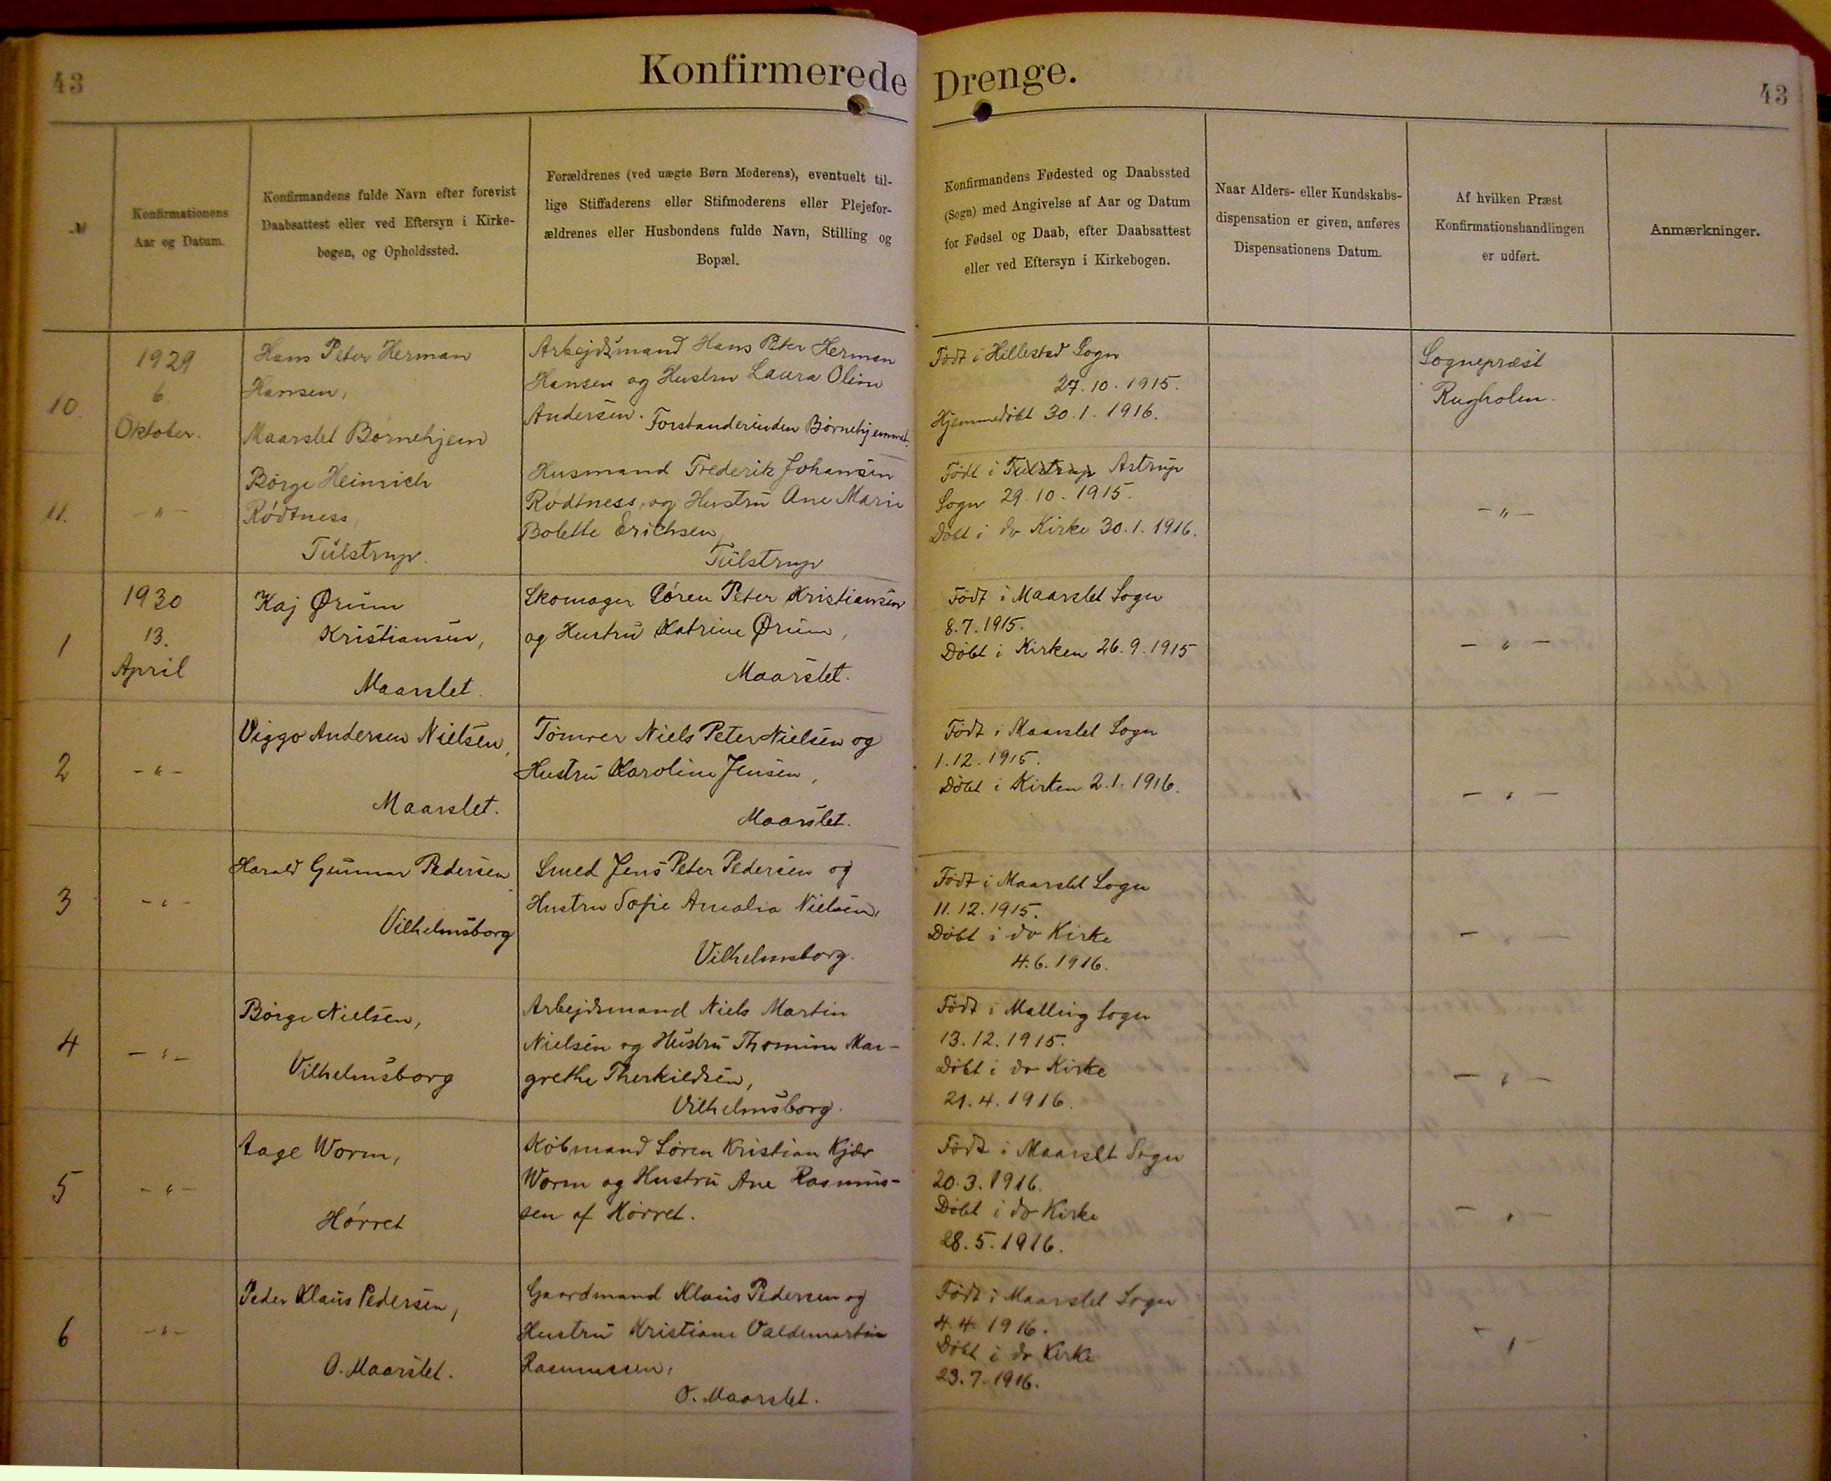 43
Konfirmerede Drenge.
43
№
Konfirmationens
Aar og Datum.
Konfirmandens fulde Navn efter forevist
Daabsattest eller ved Eftersyn i Kirke-
bogen, og Opholdssted.
Forældrenes (ved uægte Børn Moderens), eventuelt til-
lige Stiffaderens eller Stifmoderens eller Plejefor-
ældrenes eller Husbondens fulde Navn, Stilling og
Bopæl.
Konfirmandens Fødested og Daabssted
(Sogn) med Angivelse af Aar og Datum
for Fødsel og Daab, efter Daabsattest
eller ved Eftersyn i Kirkebogen.
Naar Alders- eller Kundskabs-
dispensation er given, anføres
Dispensationens Datum.
Af hvilken Præst
Konfirmationshandlingen
er udført.
Anmærkninger.
10.
1929
6.
Oktober.
Hans Peter Herman
Hansen,
Maarslet Børnehjem
Arbejdsmand Hans Peter Herman
Hansen og Hustru Laura Oline
Andersen. Forstanderinden Børnehjemmet.
Født i Hillested Sogn
27.10.1915.
Hjemmedøbt 30.1.1916.
Sognepræst
Rugholm.
11.
-"-
Børge Heinrich
Rødtness,
Tulstrup.
Husmand Frederik Johansen
Rødtness, og Hustru Ane Marie
Bolette Erichsen,
Tulstrup
Født i Tulstrup Astrup
Sogn 29.10.1915.
Døbt i do Kirke 30.1.1916.
-"-
1
1930
13.
April
Kaj Ørum
Kristiansen,
Maarslet.
Skomager Søren Peter Kristiansen
og Hustru Katrine Ørum,
Maarslet.
Født i Maarslet Sogn
8.7.1915.
Døbt i Kirken 26.9.1915
-"-
2
-"-
Viggo Andersen Nielsen,
Maarslet.
Tømrer Niels Peter Nielsen og
Hustru Karoline Jensen,
Maarslet.
Født i Maarslet Sogn
1.12.1915.
Døbt i Kirken 2.1.1916.
-"-
3
-"-
Harald Gunnar Pedersen
Vilhelmsborg
Smed Jens Peter Pedersen og
Hustru Sofie Amalia Nielsen,
Vilhelmsborg.
Født i Maarslet Sogn
11.12.1915.
Døbt i do Kirke
4.6.1916.
-"-
4
-"-
Børge Nielsen,
Vilhelmsborg
Arbejdsmand Niels Martin
Nielsen og Hustru Thomine Mar-
grethe Therkildsen,
Vilhelmsborg.
Født i Malling Sogn
13.12.1915.
Døbt i do Kirke
21.4.1916.
-"-
5
-"-
Aage Worm,
Hørret
Købmand Søren Kristian Kjær
Worm og Hustru Ane Rasmus-
sen af Hørret.
Født i Maarslet Sogn
20.3.1916.
Døbt i do Kirke
28.5.1916.
-"-
6
-"-
Peder Klaus Pedersen,
O. Maarslet.
Gaardmand Klaus Pedersen og
Hustru Kristiane Valdemartine
Rasmussen,
O. Maarslet.
Født i Maarslet Sogn
4.4.1916.
Døbt i do Kirke
23.7.1916.
-"-